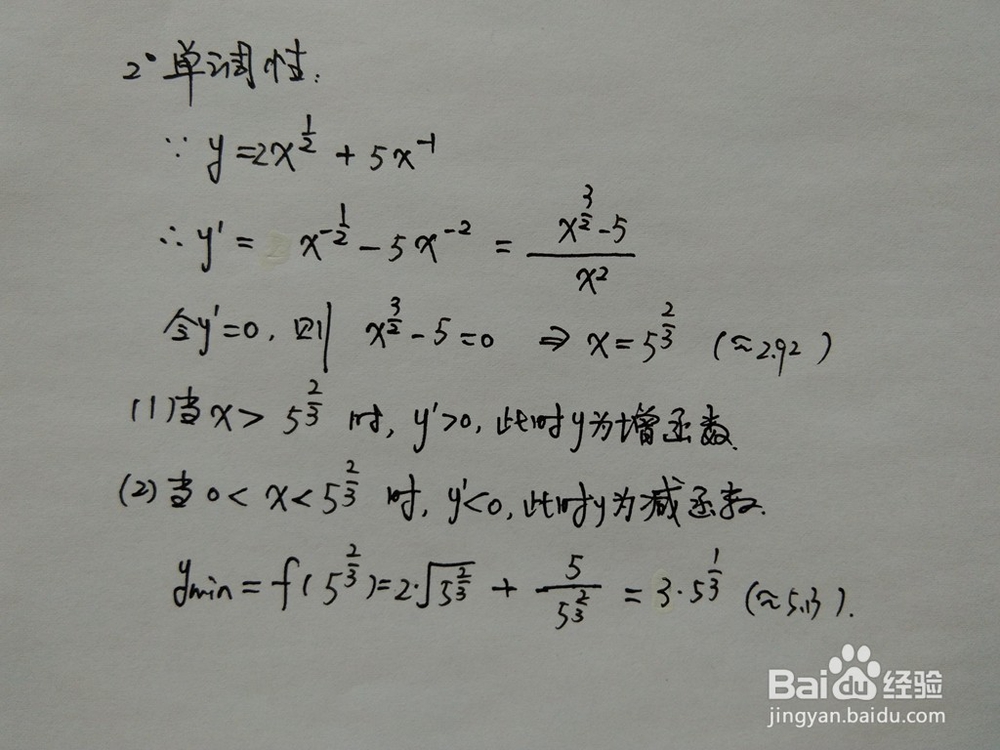 2° 单调性:
∵ y=2x^{1/2} + 5x^{-1}
∴ y' = x^{-1/2} - 5x^{-2} = \frac{x^{3/2}-5}{x^2}
令y'=0, 则 x^{3/2} - 5 = 0 ⇒ x = 5^{2/3} (≈2.92)
(1) 当 x > 5^{2/3} 时, y'>0, 此时y为增函数.
(2) 当 0 < x < 5^{2/3} 时, y'<0, 此时y为减函数.
y_{min} = f(5^{2/3}) = 2·\sqrt{5^{2/3}} + \frac{5}{5^{2/3}} = 3·5^{1/3} (≈5.13).
Baidu经验
jingyan.baidu.com